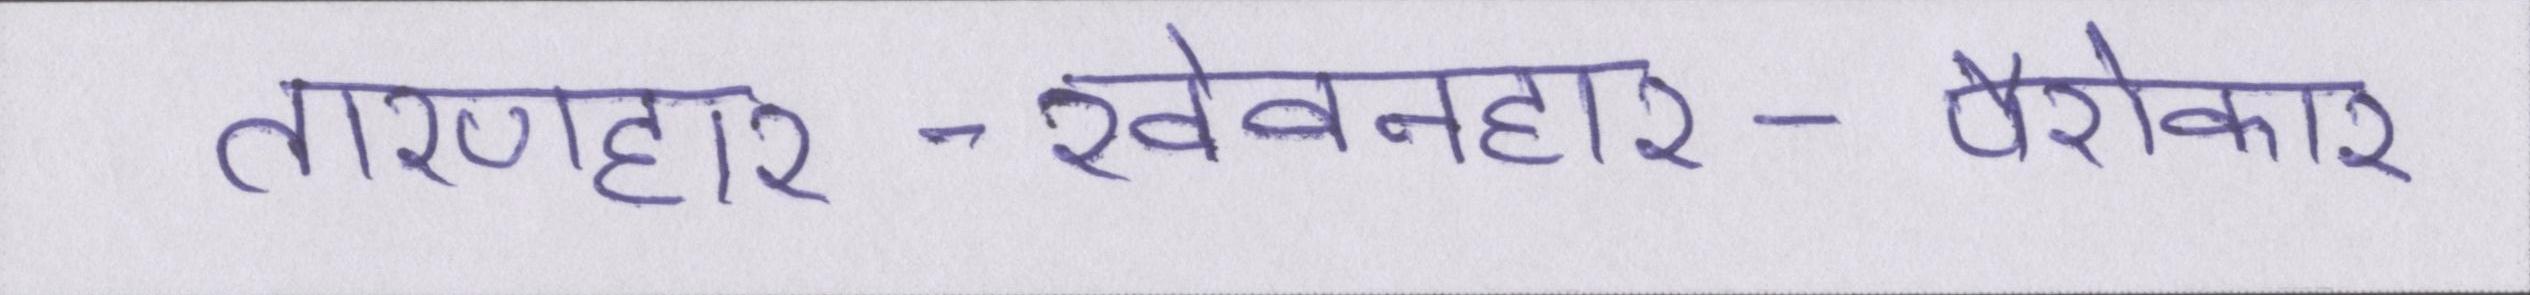 तारणहार - खेवनहार - पैरोकार